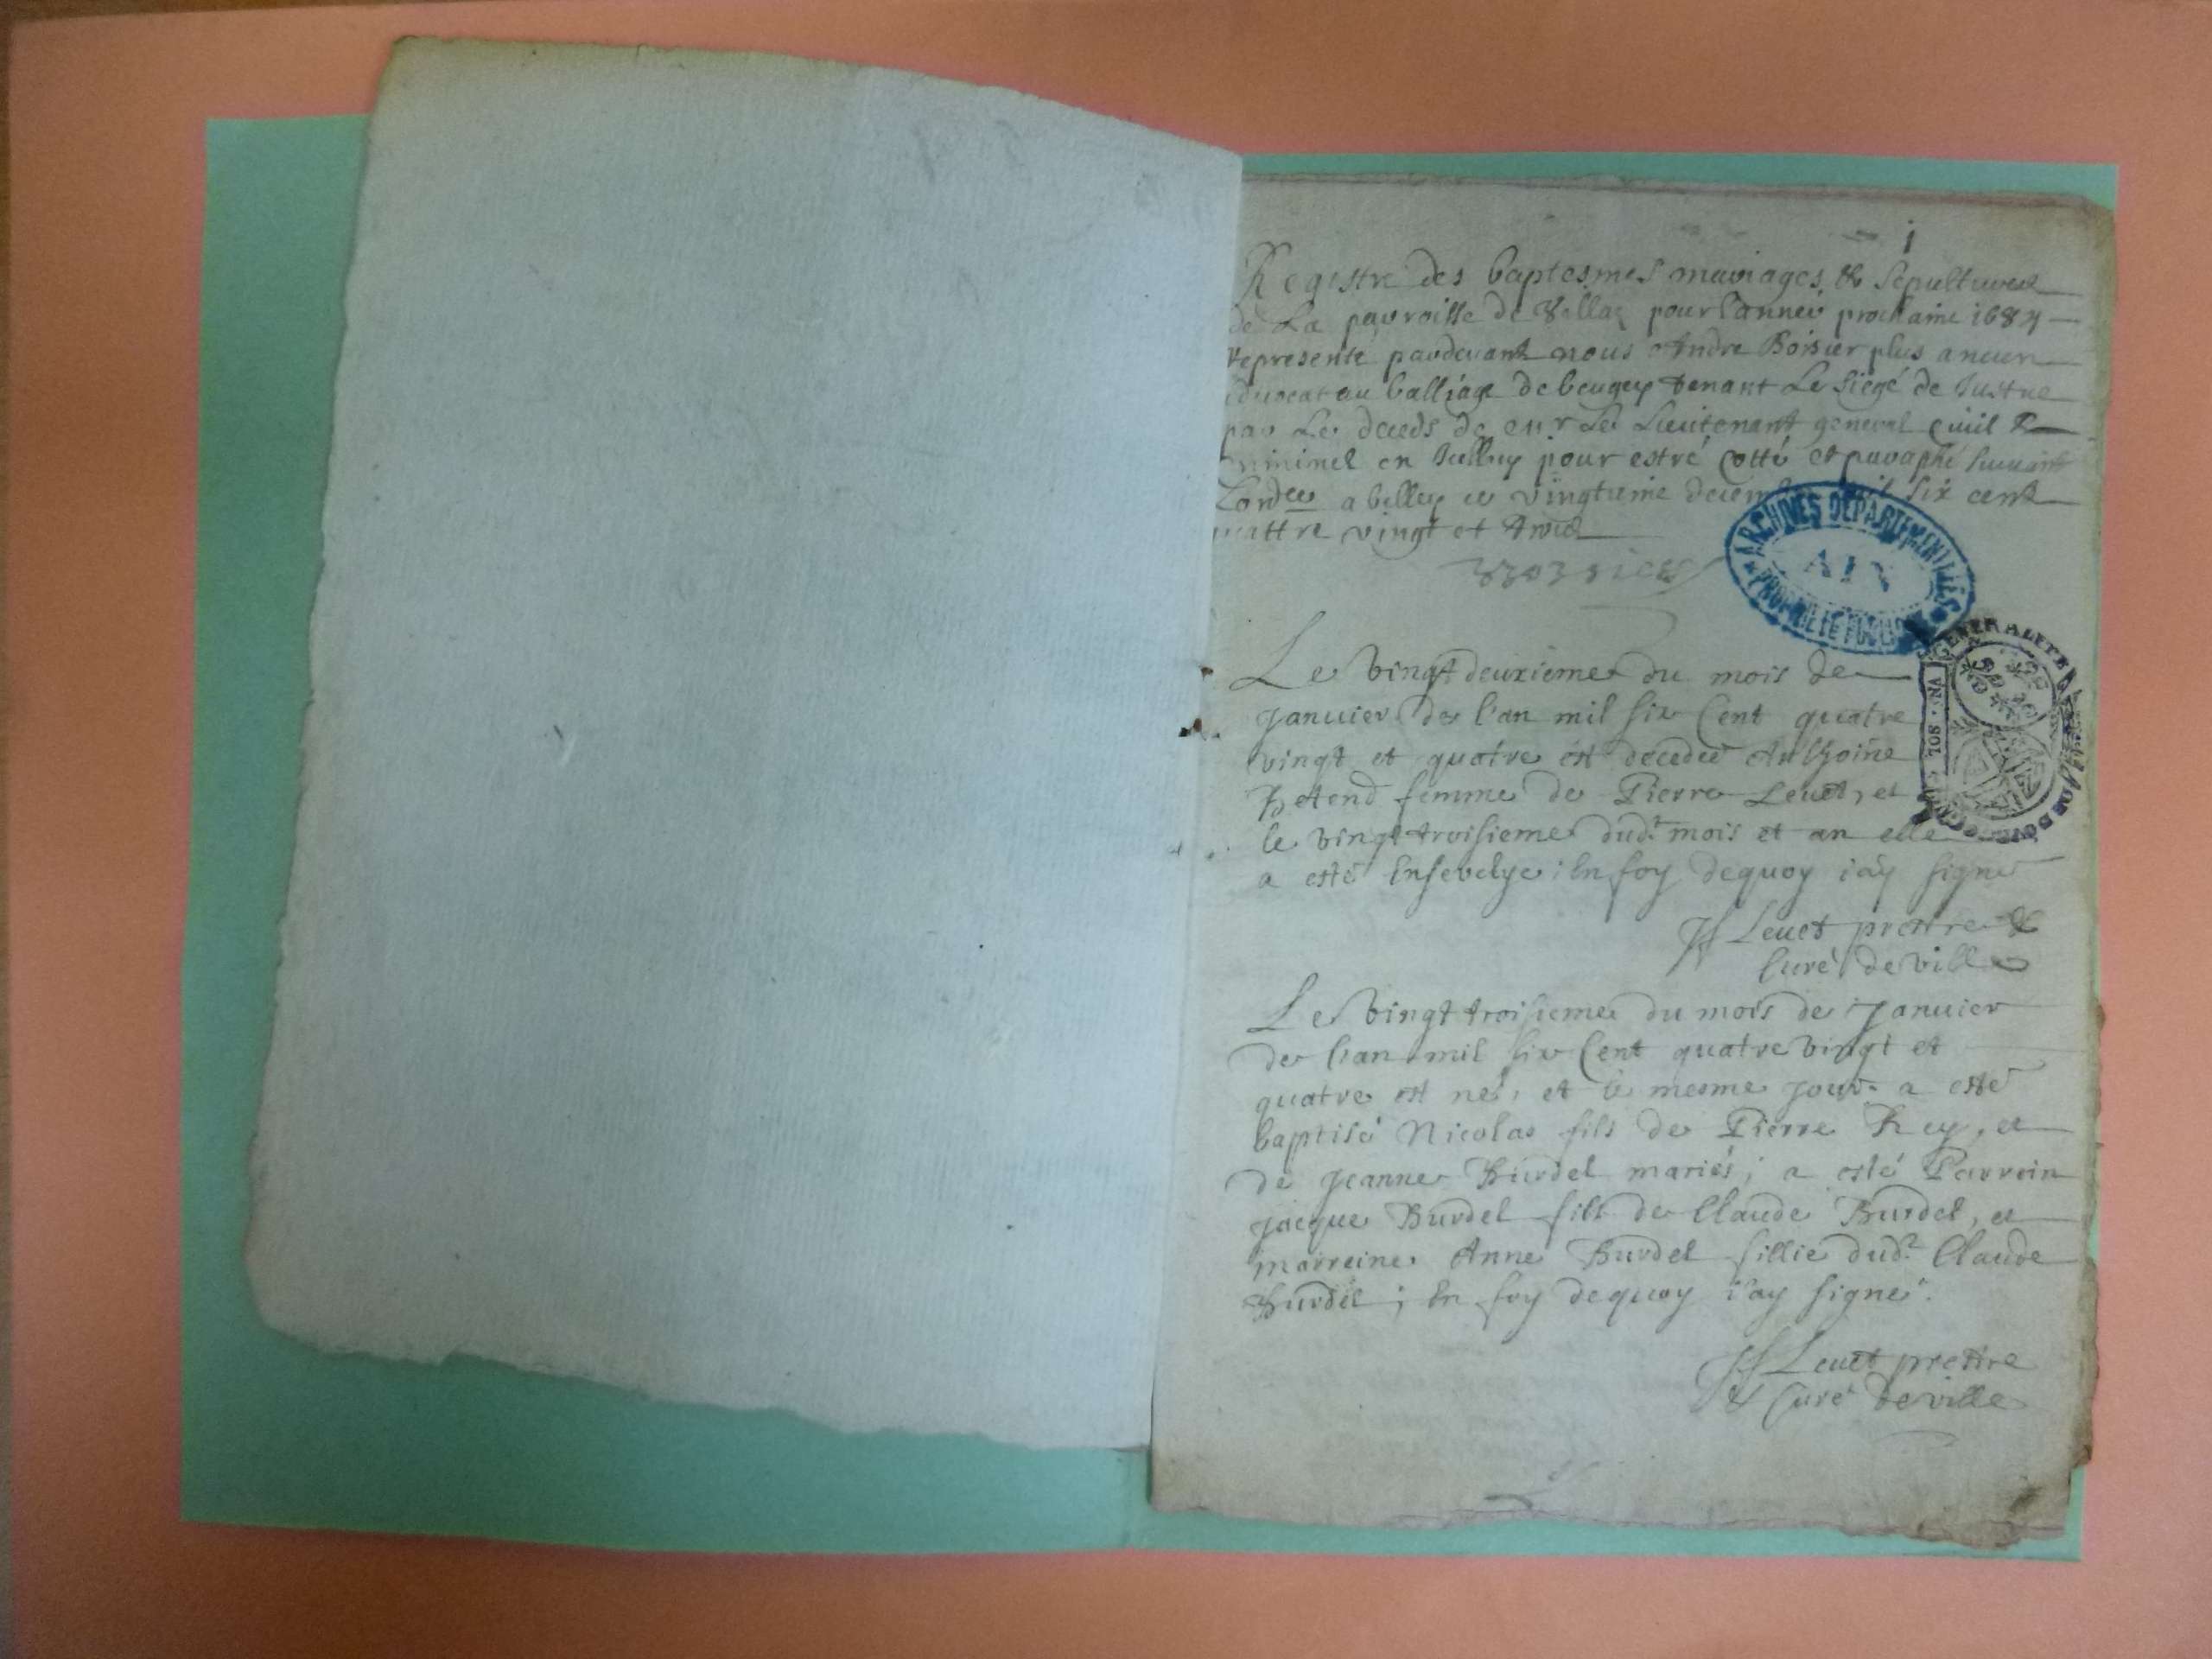 i
Registre des baptesmes mariages & sepultures
de La parroisse de pour l'anneé prochaine 1684
represente pardevant nous Andre Boisier plus ancien
advocat au balliage de beugey tenant Le siege de Justice
par Le deceds de Le Lieutenant general civil &
criminel en pour estre cotté et paraphé suivant
Lordce a belley ce vingtieme six cent
quattre vingt et trois
ARCHIVES DÉPARTEMENTALES
AIN
PROPRIÉTÉ PUBLIQUE
Le vingt deuxieme du mois de
GENERALITE
SOL
Januier de l'an mil six Cent quatre
vingt et quatre est decedeé Anthoine
femme de Pierre Levet, et
le vingt troisieme dudt mois et an elle
a esté Ensevelye : En foy dequoy i'ay signé
Levet prestre &
Curé de ville
Le vingt troisieme du mois de Januier
de l'an mil six Cent quatre vingt et
quatre est né, et le mesme jour a esté
baptisé Nicolas fils de Pierre Rey, et
de Jeanne Burdel mariés ; a esté Parrein
Jacque Burdel fils de Claude Burdel, et
marreine Anne Burdel fillie dudt Claude
Burdel ; En foy dequoy i'ay signé.
Levet prestre
& Curé de ville